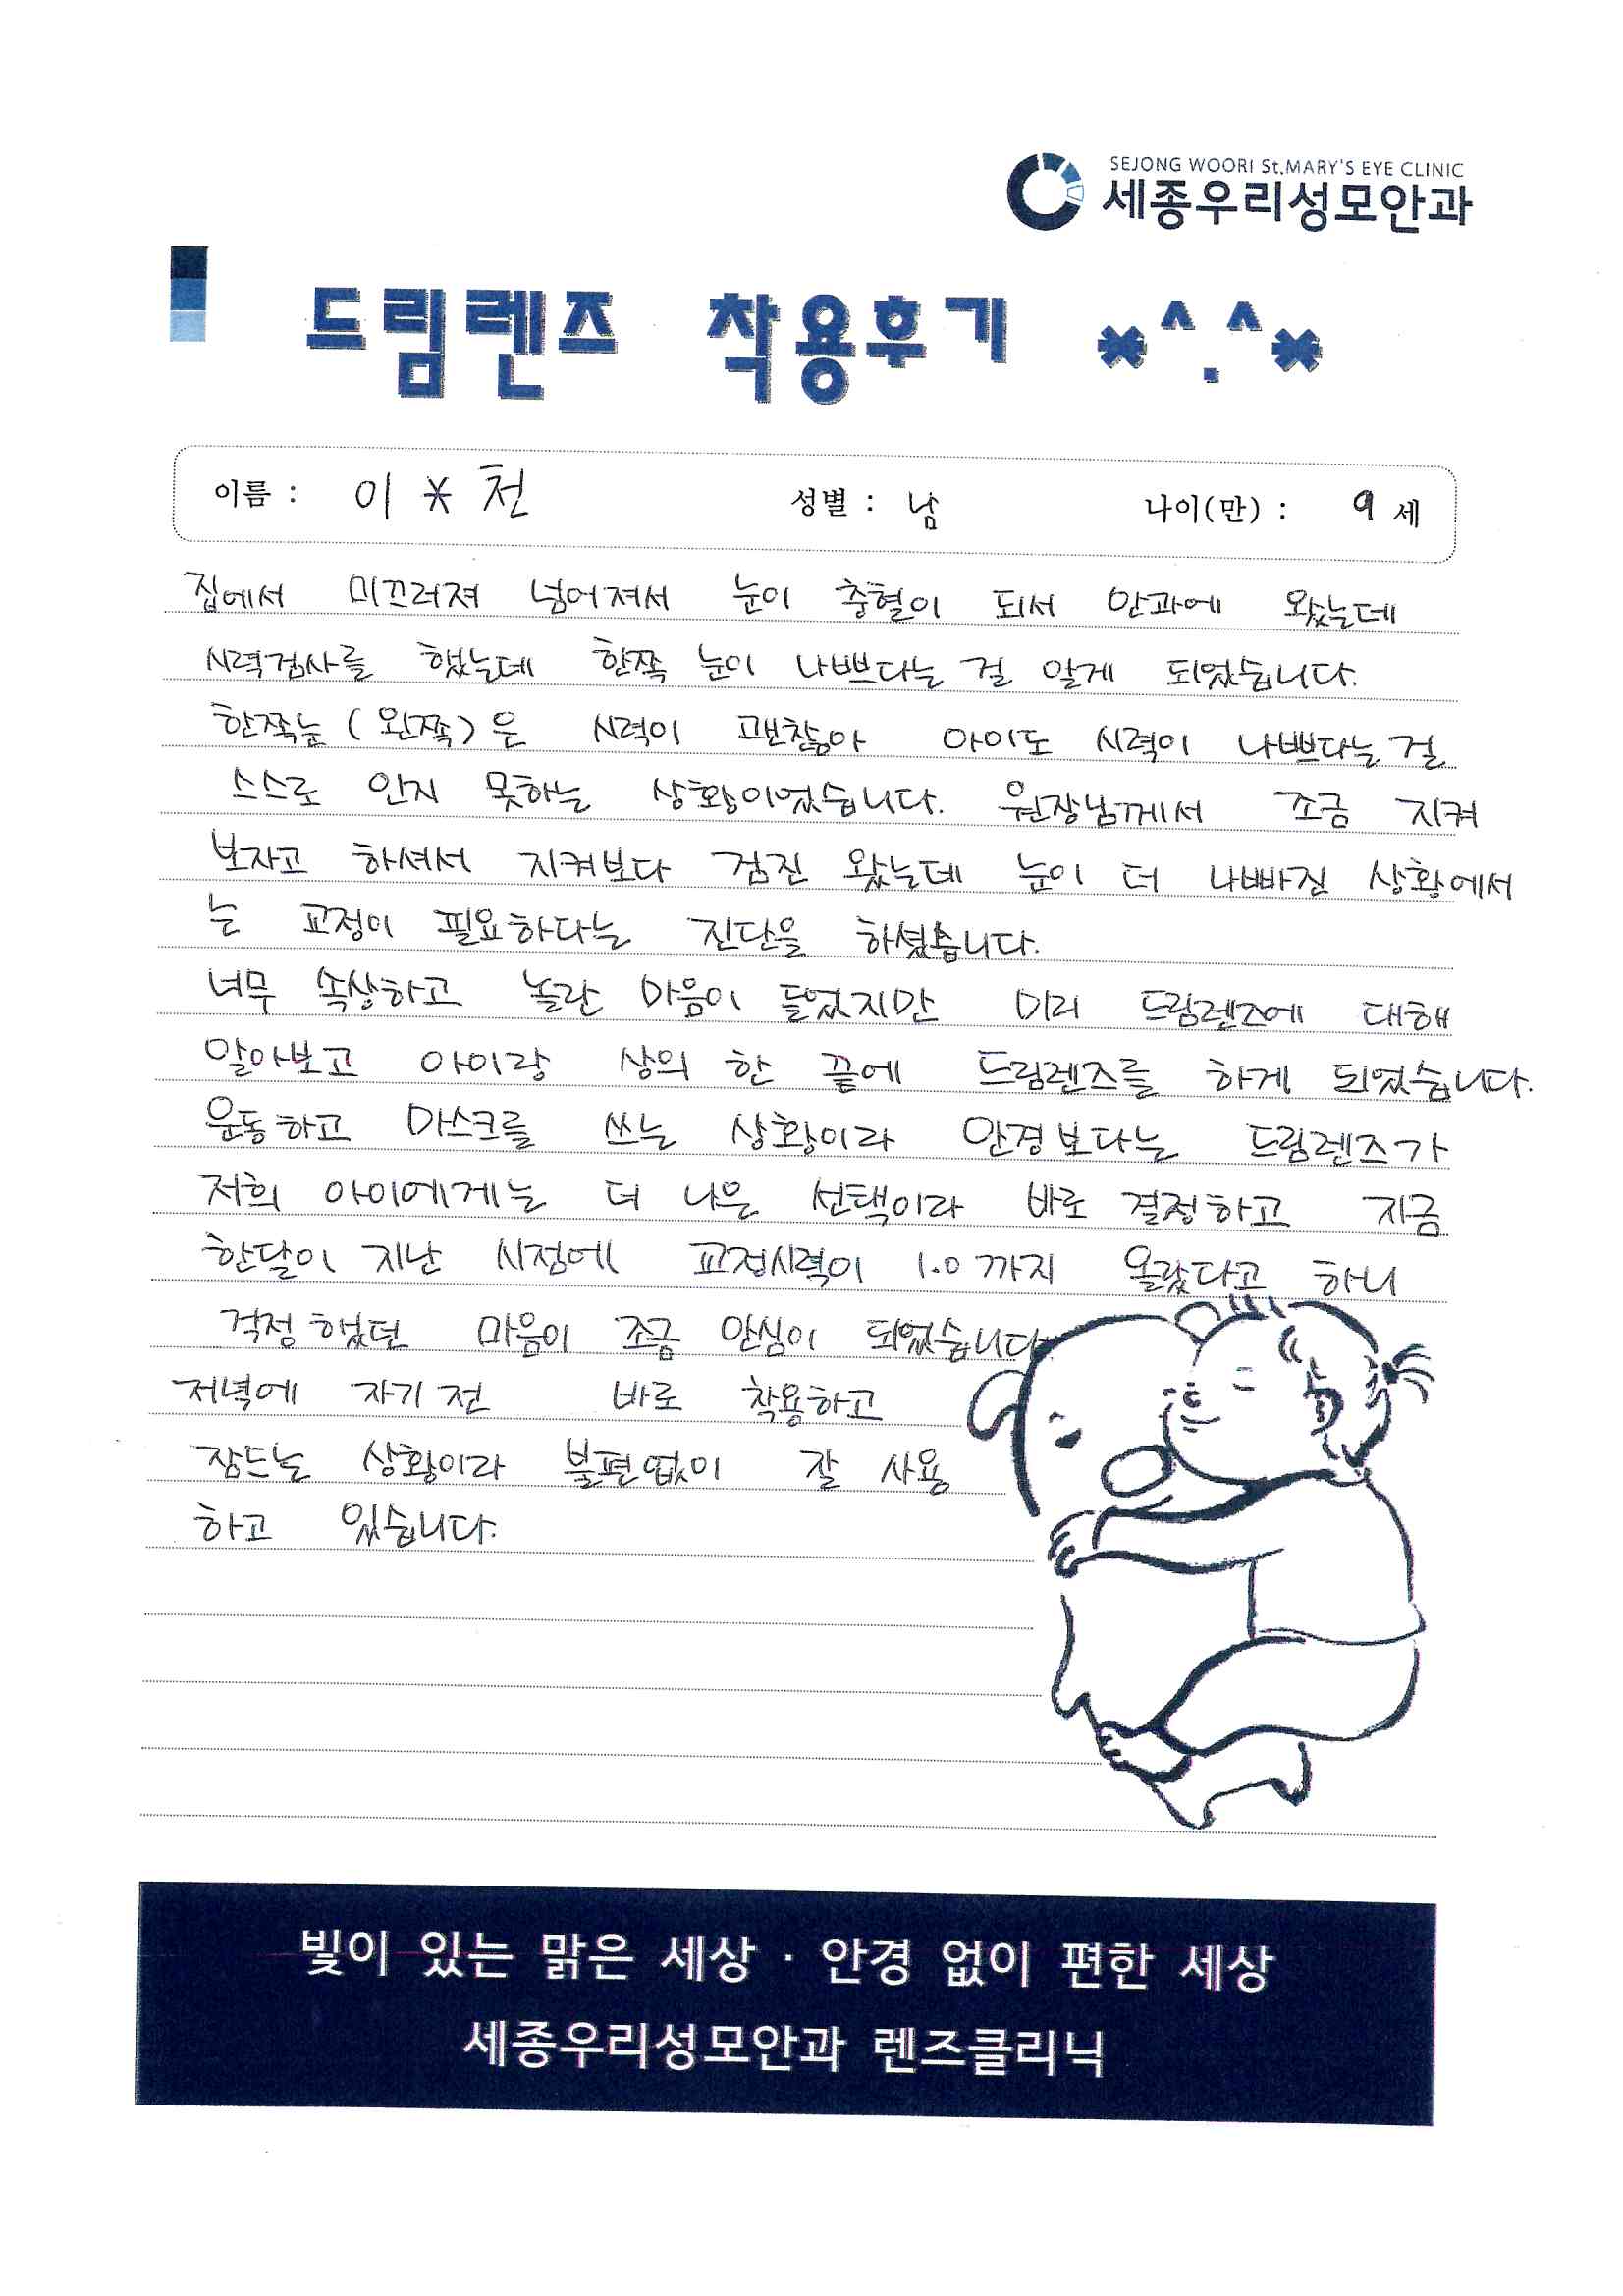 SEJONG WOORI St.MARY'S EYE CLINIC
세종우리성모안과
드림렌즈 착용후기 *^.^*
이름 : 이 * 천 성별 : 남 나이(만) : 9 세
집에서 미끄러져 넘어져서 눈이 충혈이 되서 안과에 왔는데
시력검사를 했는데 한쪽 눈이 나쁘다는 걸 알게 되었습니다.
한쪽눈(왼쪽)은 시력이 괜찮아 아이도 시력이 나쁘다는 걸
스스로 인지 못하는 상황이었습니다. 원장님께서 조금 지켜
보자고 하셔서 지켜보다 검진 왔는데 눈이 더 나빠진 상황에서
는 교정이 필요하다는 진단을 하셨습니다.
너무 속상하고 놀란 마음이 들었지만 미리 드림렌즈에 대해
알아보고 아이랑 상의 한 끝에 드림렌즈를 하게 되었습니다.
운동하고 마스크를 쓰는 상황이라 안경보다는 드림렌즈가
저희 아이에게는 더 나은 선택이라 바로 결정하고 지금
한달이 지난 시점에 교정시력이 1.0까지 올랐다고 하니
걱정했던 마음이 조금 안심이 되었습니다.
저녁에 자기 전 바로 착용하고
잠드는 상황이라 불편없이 잘 사용
하고 있습니다.
빛이 있는 맑은 세상 · 안경 없이 편한 세상
세종우리성모안과 렌즈클리닉